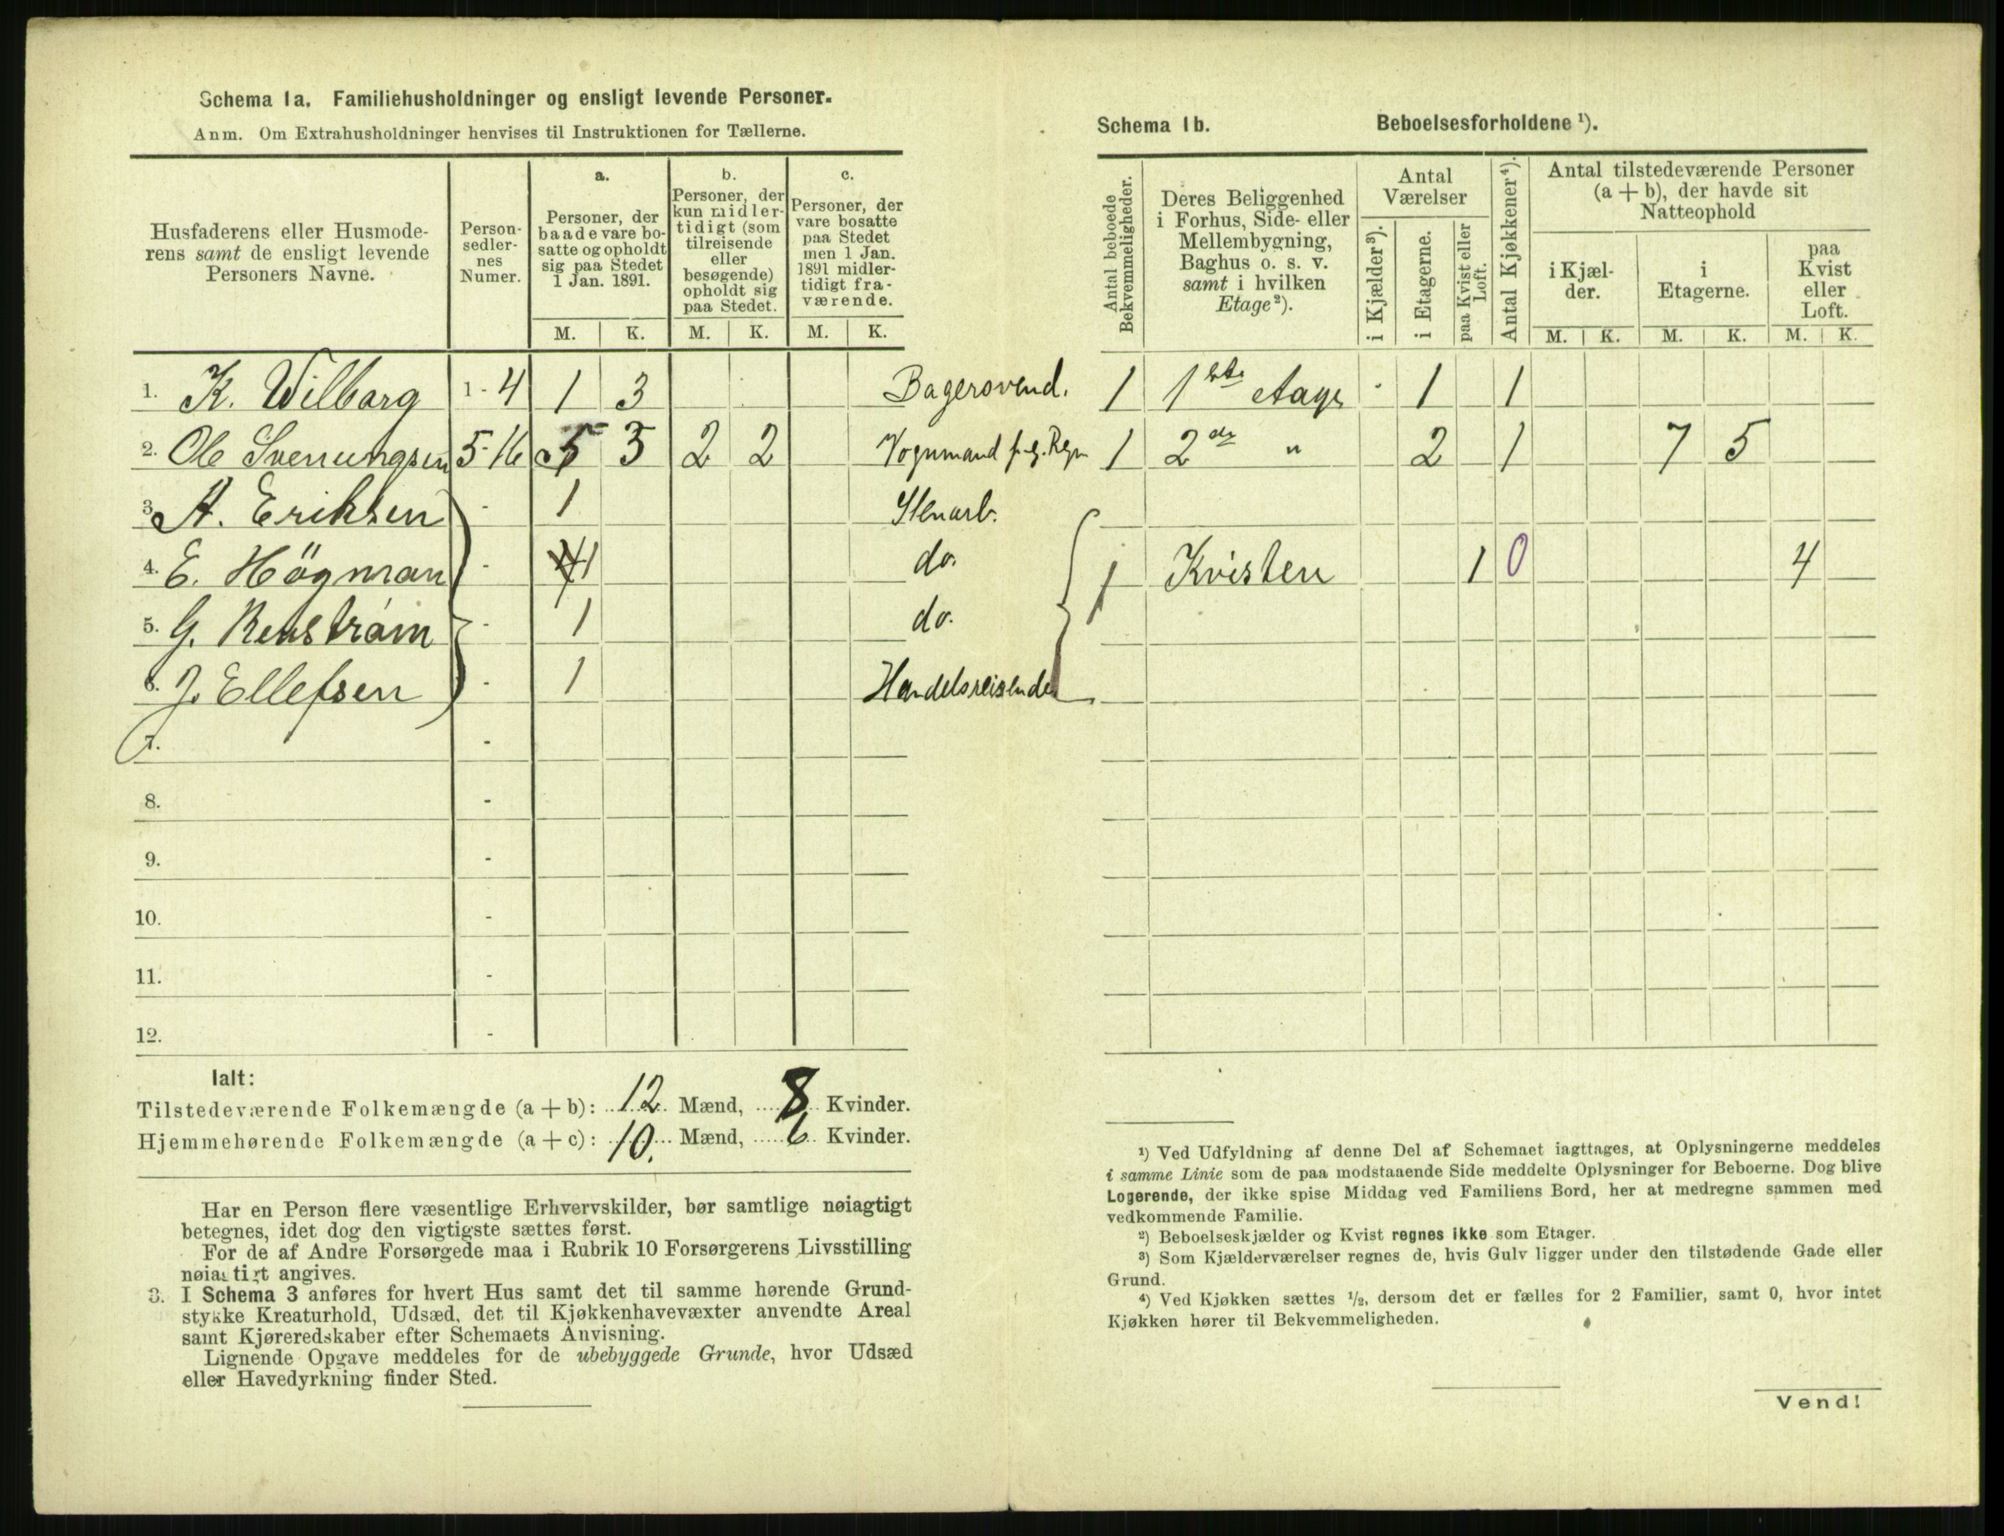 Schema 1a. Familiehusholdninger og ensligt levende Personer.
Anm. Om Extrahusholdninger henvises til Instruktionen for Tællerne.
Husfaderens eller Husmode-
rens samt de ensligt levende
Personers Navne.
Person-
sedler-
nes
Numer.
a.
Personer, der
baade vare bo-
satte og opholdt
sig paa Stedet
1 Jan. 1891.
b.
Personer, der
kun midler-
tidigt (som
tilreisende
eller
besøgende)
opholdt sig
paa Stedet.
c.
Personer, der
vare bosatte
paa Stedet
men 1 Jan.
1891 midler-
tidigt fra-
værende.
M. K. M. K. M. K.
1. K. Wilbarg 1 - 4 1 3 Bagersvend.
2. Ole Svenungsen 5-16 5 3 2 2 Vognmand
3. A. Eriksen - 1 Stenarb.
4. E. Högman - 1 do.
5. G. Renstrøm - 1 do.
6. J. Ellefsen - 1 Handelsreisende
7. -
8. -
9. -
10. -
11. -
12. -
Ialt:
Tilstedeværende Folkemængde (a + b): 12 Mænd, 8 Kvinder.
Hjemmehørende Folkemængde (a + c): 10. Mænd, 6 Kvinder.
Har en Person flere væsentlige Erhvervskilder, bør samtlige nøiagtigt
betegnes, idet dog den vigtigste sættes først.
For de af Andre Forsørgede maa i Rubrik 10 Forsørgerens Livsstilling
nøiagtigt angives.
3. I Schema 3 anføres for hvert Hus samt det til samme hørende Grund-
stykke Kreaturhold, Udsæd, det til Kjøkkenhavevæxter anvendte Areal
samt Kjøreredskaber efter Schemaets Anvisning.
Lignende Opgave meddeles for de ubebyggede Grunde, hvor Udsæd
eller Havedyrkning finder Sted.
Schema 1b. Beboelsesforholdene ¹).
Antal beboede
Bekvemmeligheder.
Deres Beliggenhed
i Forhus, Side- eller
Mellembygning,
Baghus o. s. v.
samt i hvilken
Etage²).
Antal
Værelser
i Kjælder³).
i Etagerne.
paa Kvist eller
Loft.
Antal Kjøkkener⁴).
Antal tilstedeværende Personer
(a + b), der havde sit
Natteophold
i Kjæl-
der.
i
Etagerne.
paa
Kvist
eller
Loft.
M. K. M. K. M. K.
1 1ste Etage 1 1
1 2de " 2 1 7 5
1 Kvisten 1 0 4
¹) Ved Udfyldning af denne Del af Schemaet iagttages, at Oplysningerne meddeles
i samme Linie som de paa modstaaende Side meddelte Oplysninger for Beboerne. Dog blive
Logerende, der ikke spise Middag ved Familiens Bord, her at medregne sammen med
vedkommende Familie.
²) Beboelseskjælder og Kvist regnes ikke som Etager.
³) Som Kjælderværelser regnes de, hvis Gulv ligger under den tilstødende Gade eller
Grund.
⁴) Ved Kjøkken sættes ½, dersom det er fælles for 2 Familier, samt 0, hvor intet
Kjøkken hører til Bekvemmeligheden.
Vend!